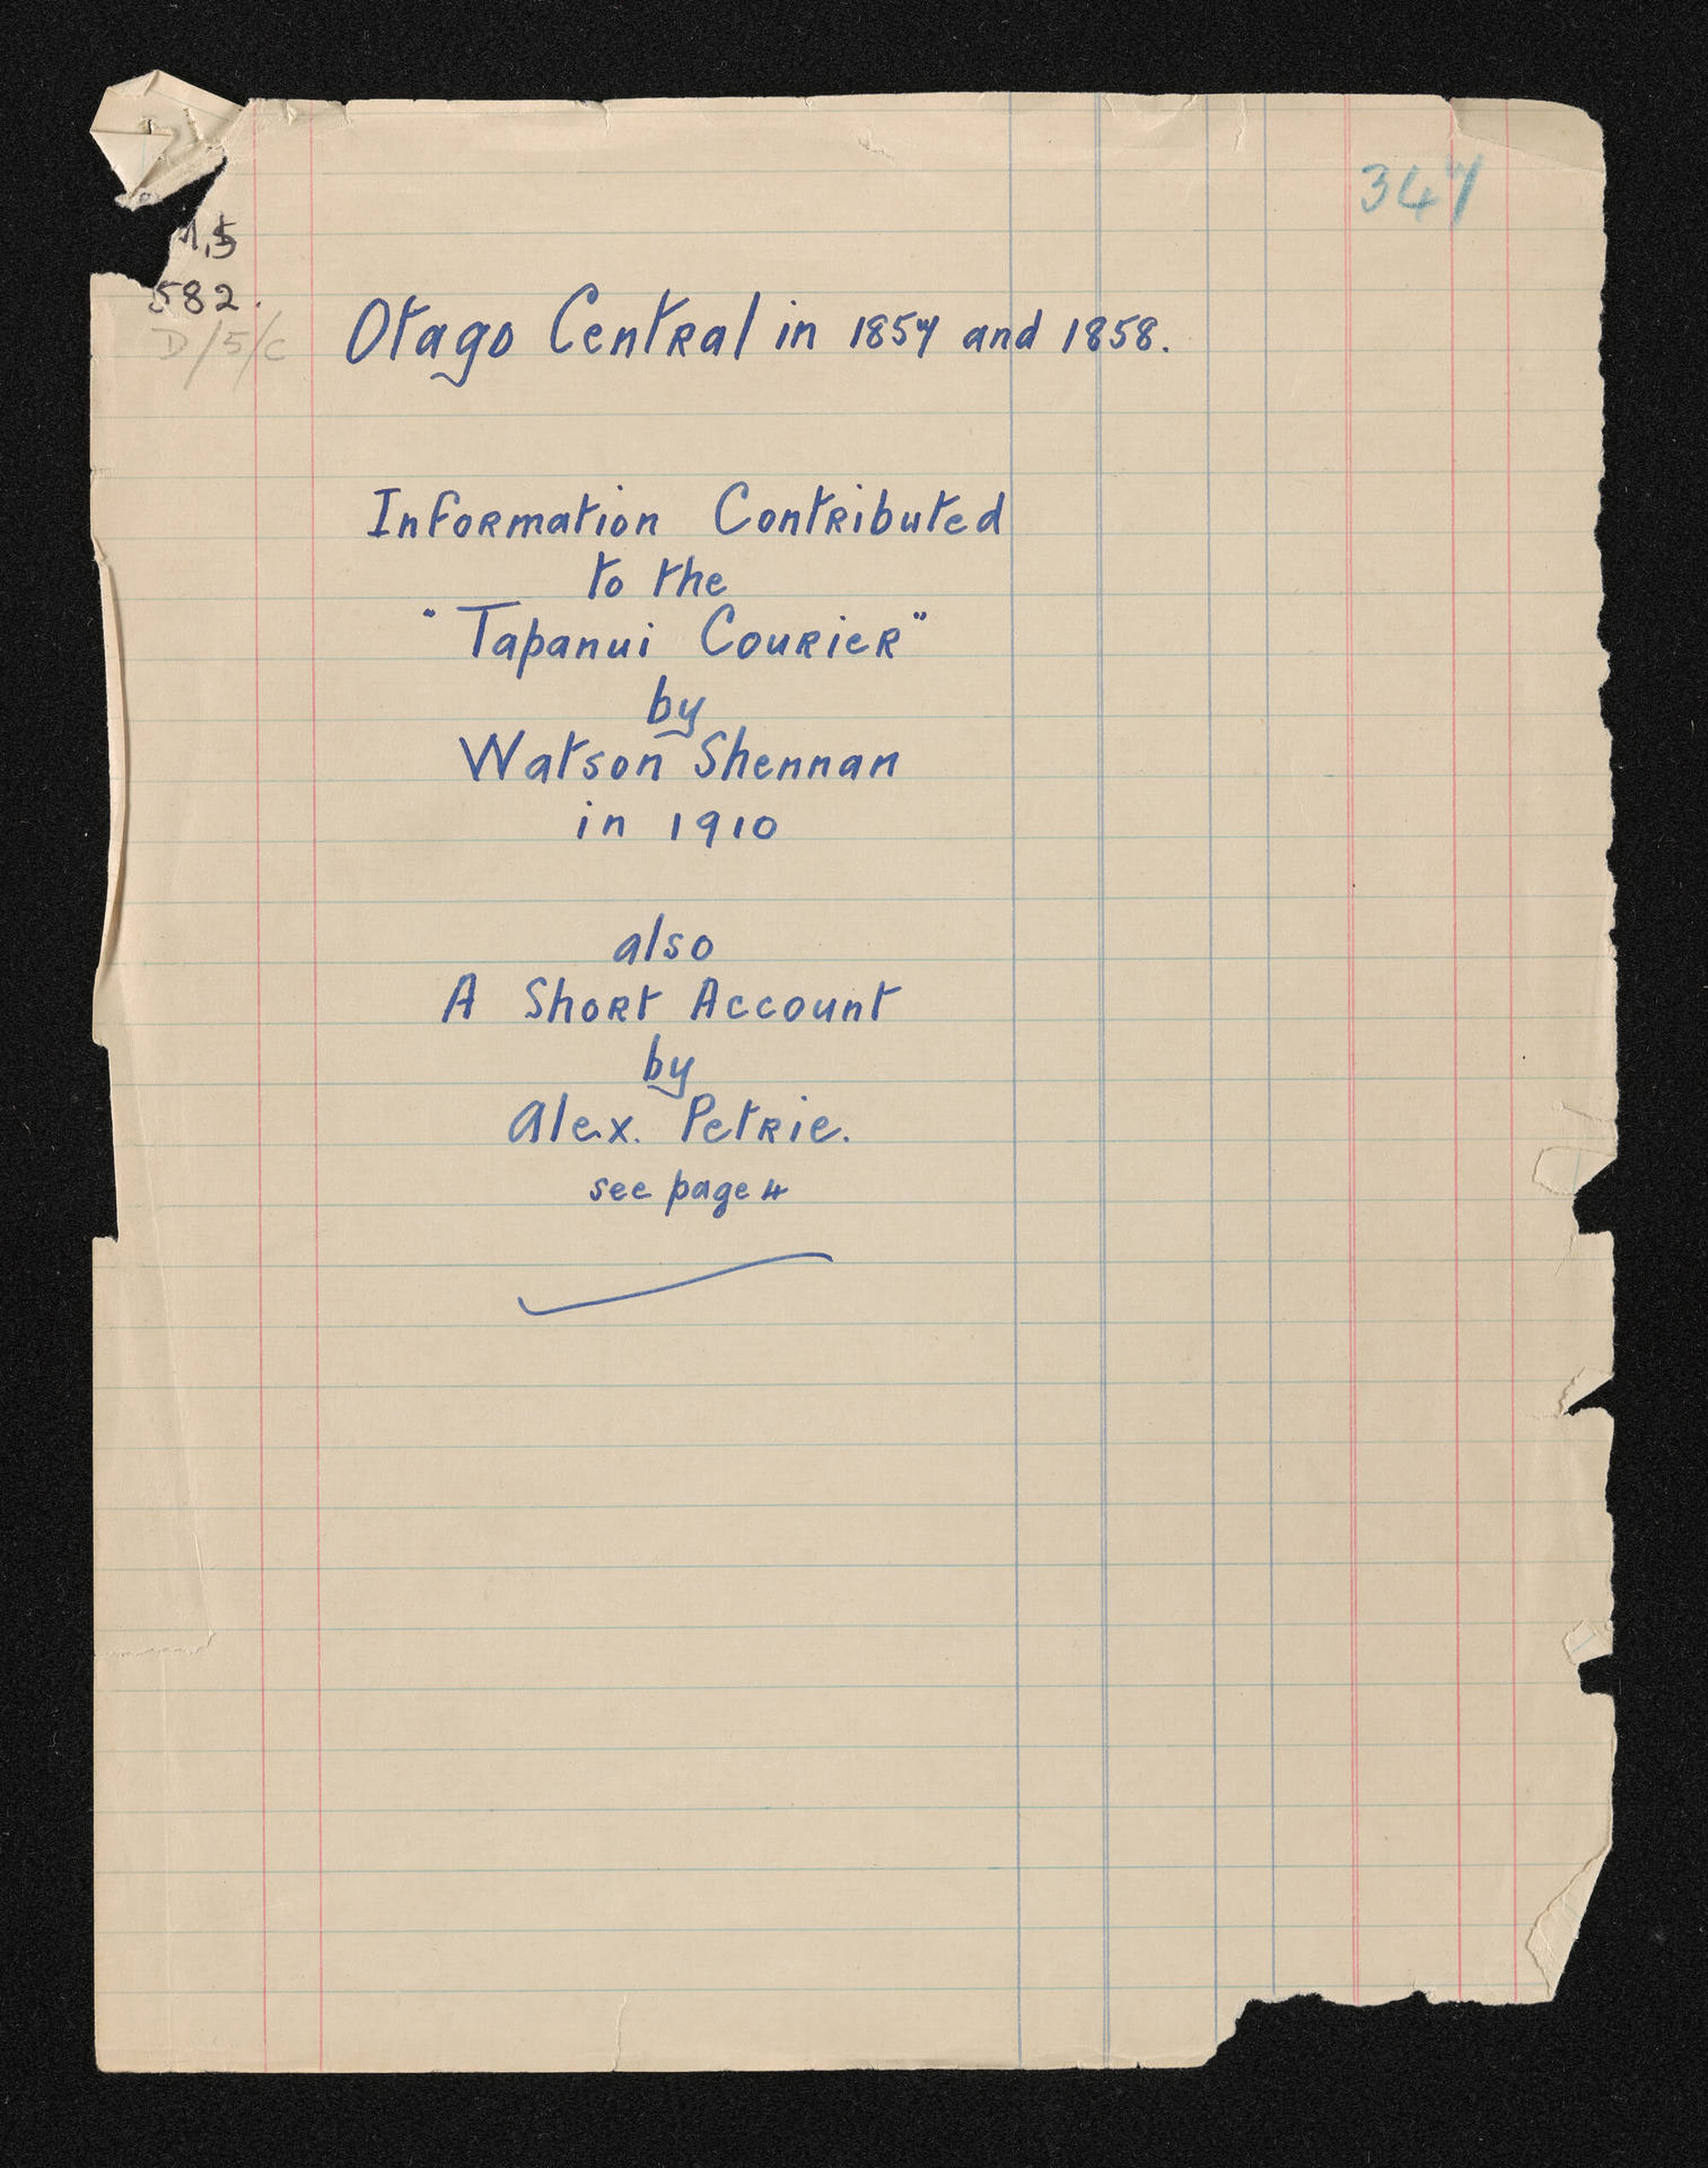 347
582.
D/5/C
Otago Central in 1857 and 1858.
Information Contributed
to the
"Tapanui Courier"
by
Watson Shennan
in 1910
also
A Short Account
by
Alex. Petrie.
see page 4